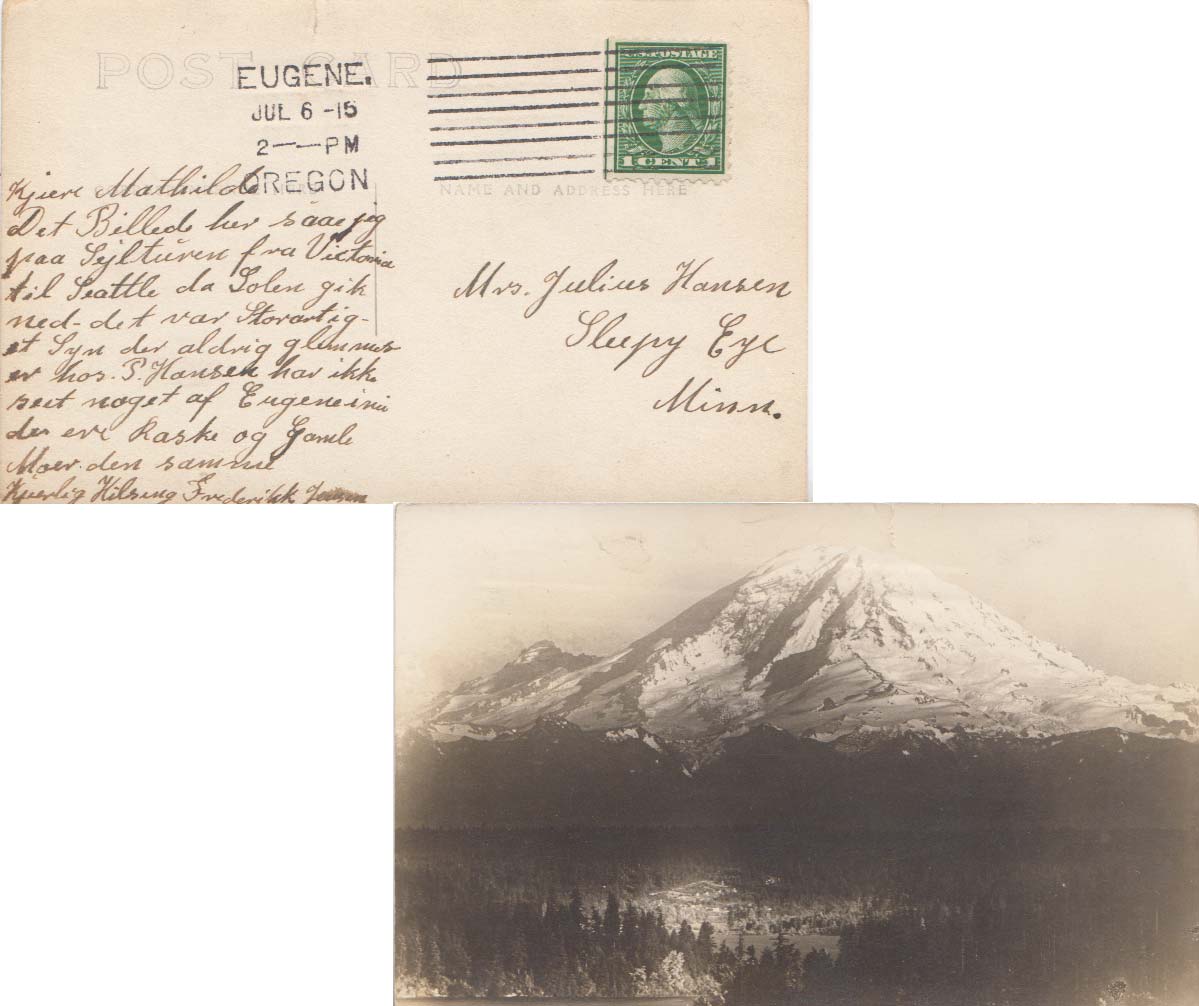 POST CARD
EUGENE.
JUL 6 -15
2 — PM
OREGON
U.S. POSTAGE
1 CENT 1
NAME AND ADDRESS HERE
Kjære Mathilde
Det Billede her saae jeg
paa Sejlturen fra Victoria
til Seattle da Solen gik
ned - det var Storartig -
et Syn der aldrig glemmes
er hos. P. Hansen har ikke
seet noget af Eugene
de ere Raske og Gamle
Moer den samme
Kjærlig Hilsing Frederikk Jensen
Mrs. Julius Hansen
Sleepy Eye
Minn.